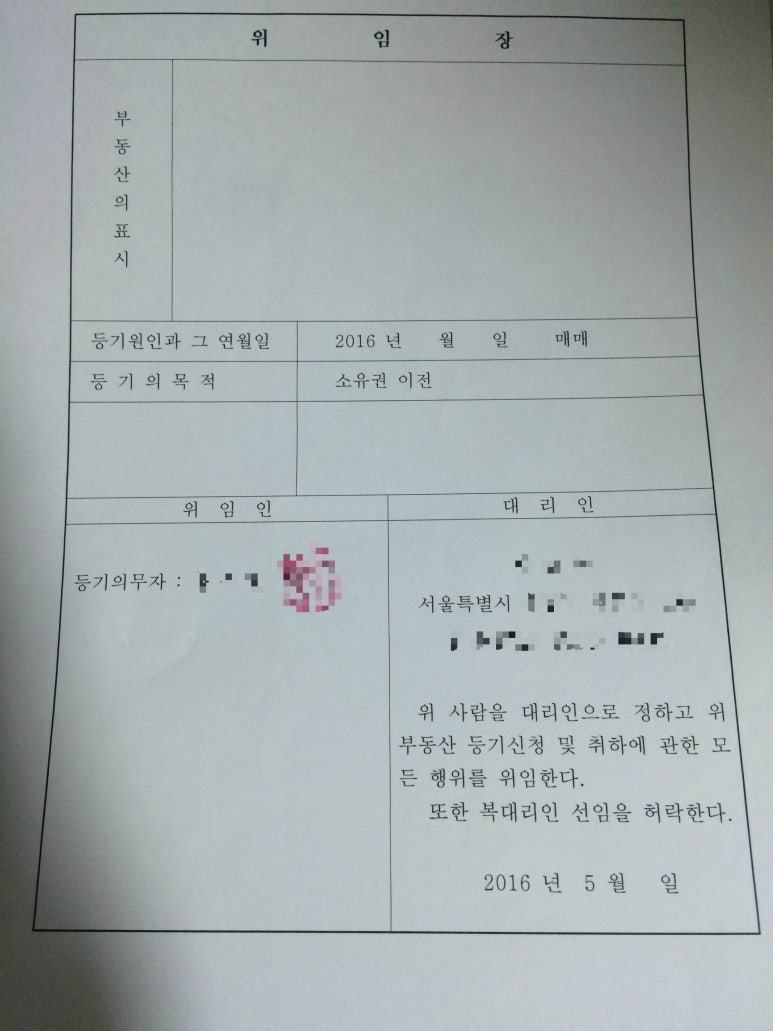 위 임 장
부동산의표시
등기원인과 그 연월일 2016 년 월 일 매매
등 기 의 목 적 소유권 이전
위 임 인 대 리 인
등기의무자 :
서울특별시
위 사람을 대리인으로 정하고 위
부동산 등기신청 및 취하에 관한 모
든 행위를 위임한다.
또한 복대리인 선임을 허락한다.
2016 년 5 월 일